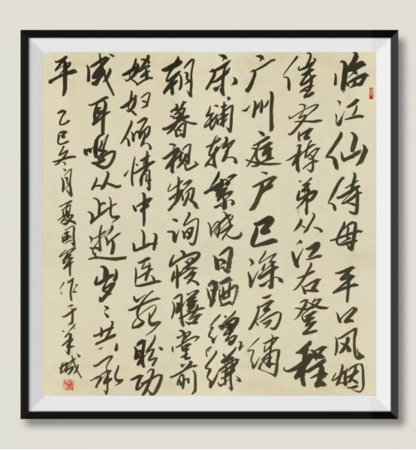 临江仙侍母 平口风烟
催客棹弟从江右登程
广州庭户已深扃绣
床铺软絮晓日晒缯缣
朝暮视频询寝膳堂前
娃妇倾情中山医苑盼功
成耳鸣从此逝岁〻共承
平 乙巳冬月夏国军作于羊城